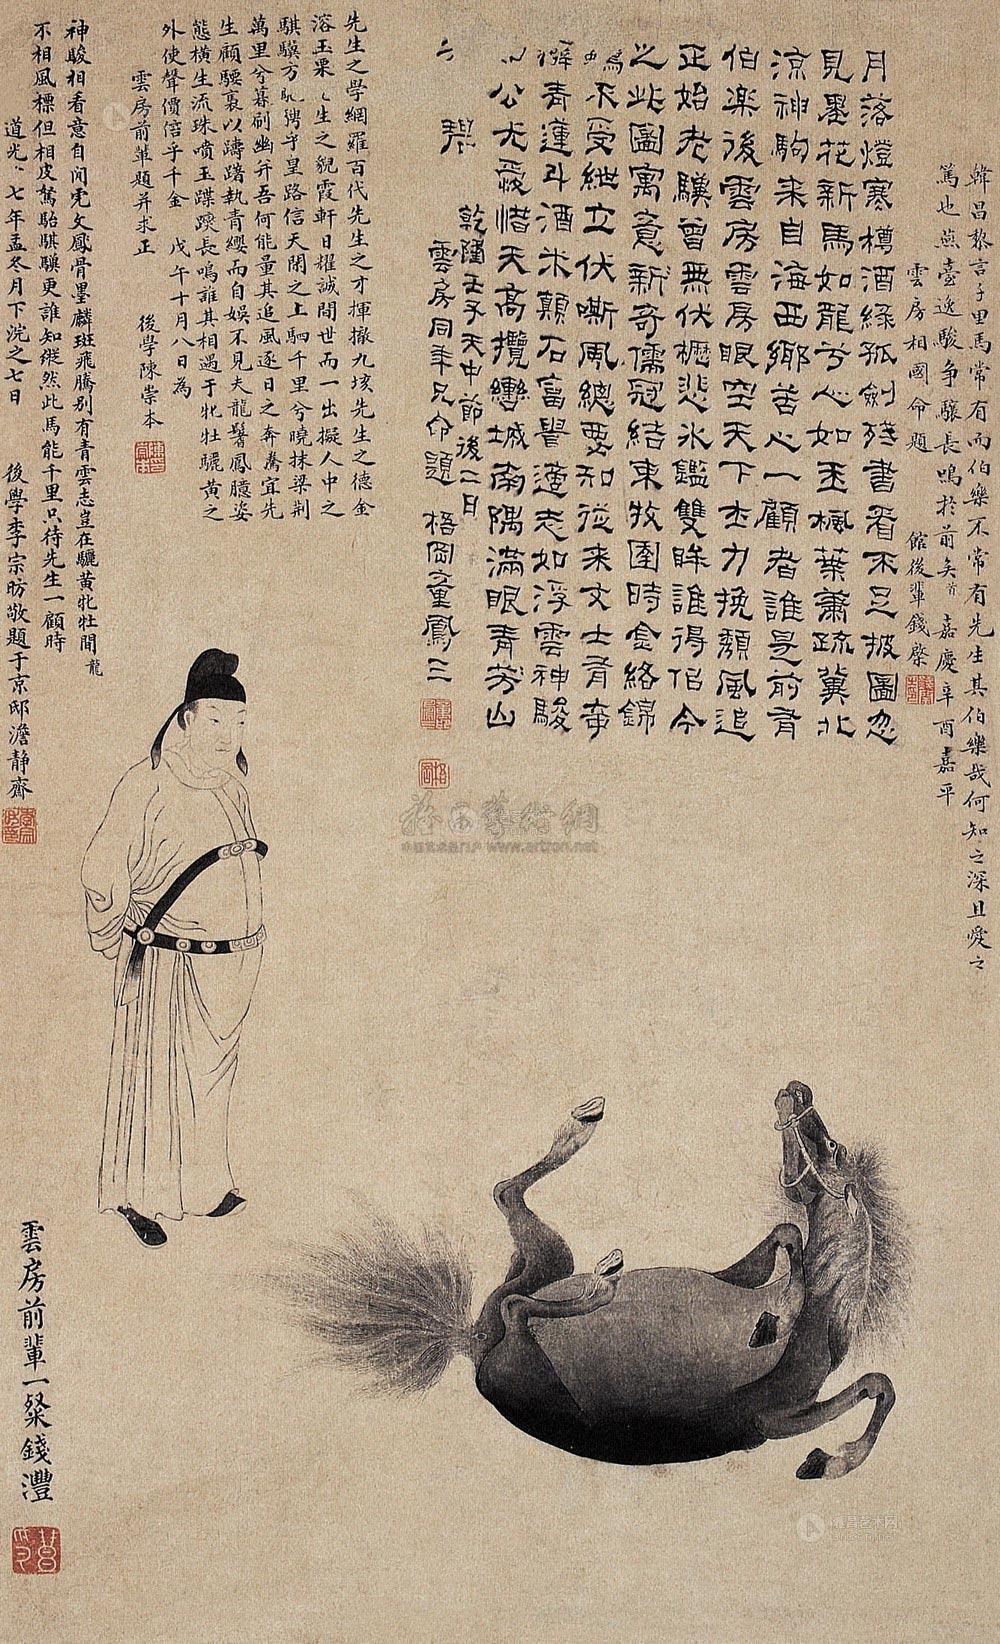 韓昌黎言千里馬常有而伯樂不常有先生其伯樂哉何知之深且愛之
篤也燕臺逸駿爭驤長鳴於前矣 嘉慶辛酉嘉平
雲房相國命題 館後輩錢棨
月落燈寒樽酒綠孤劍殘書看不足披圖忽
見墨花新馬如龍兮人如玉楓葉蕭疏冀北
涼神駒來自海西鄉苦心一顧者誰是前有
伯樂後雲房雲房眼空天下士力挽頹風追
正始老驥曾無伏櫪悲冰鑑雙眸誰得侣今
之此圖寓意新奇儒冠結束牧圉時金絡錦
不受紲立伏嘶風總要知從來文士有奇
癖青蓮斗酒米顛石富譽適志如浮雲神駿
公尤愛惜天高攬轡城南隅滿眼青芻山
乾隆壬子天中節後二日
雲房同年兄命題 梧岡童鳳三
先生之學網羅百代先生之才揮撤九垓先生之德金
溶玉栗先生之貌霞軒日耀誠間世而一出擬人中之
騏驥方馳騁乎皇路信天閑之上駟千里兮曉抹梁荆
萬里兮暮刷幽并吾何能量其追風逐日之奔騖宜先
生顧騕褭以躊躇執青纓而自娛不見夫龍鬐鳳臆姿
態橫生流珠噴玉蹀躞長鳴誰其相遇于牝牡驪黃之
外使聲價倍乎千金 戊午十月八日為
雲房前輩題并求正 後學陳崇本
神駿相看意自閒霓文鳳骨墨麟斑飛騰別有青雲志豈在驪黃牝牡間 龍
不相風標但相皮駑駘騏驥更誰知縱然此馬能千里只待先生一顧時
道光 七年孟冬月下浣之七日 後學李宗昉敬題于京邸澹靜齋
雲房前輩一粲錢灃
www.artron.net